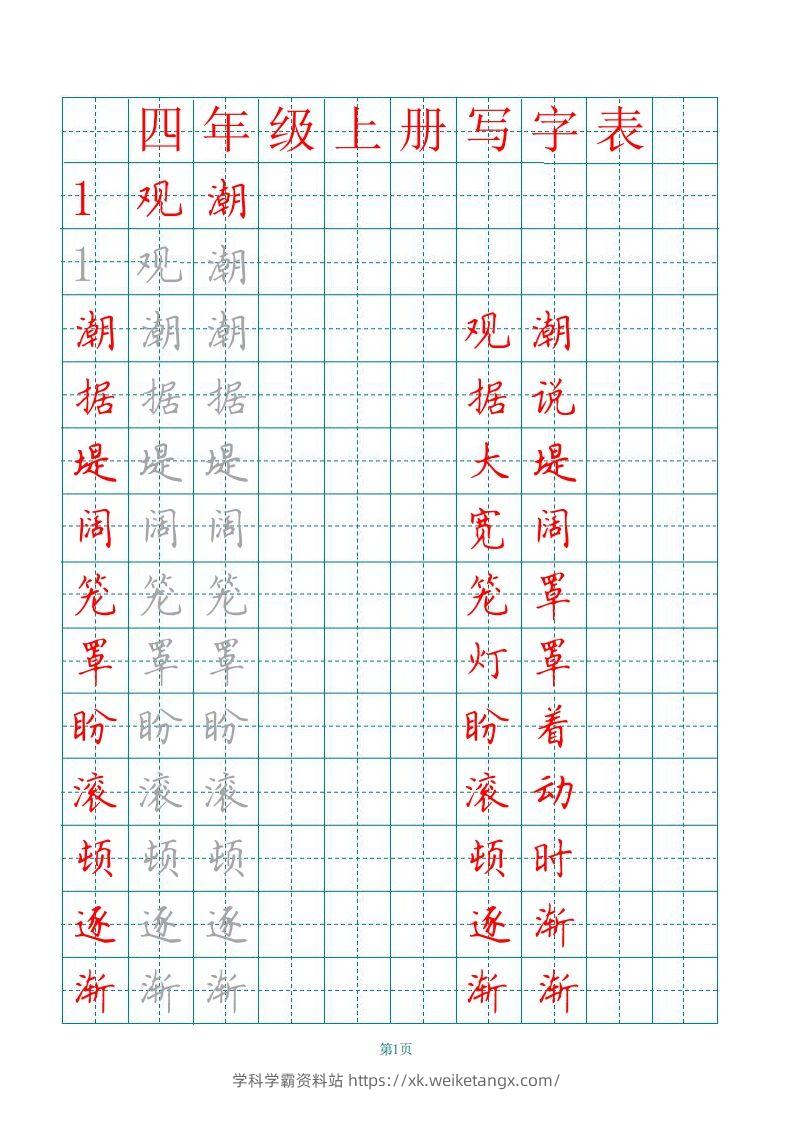 四年级上册写字表
1 观潮
1 观潮
潮潮潮 观潮
据据据 据说
堤堤堤 大堤
阔阔阔 宽阔
笼笼笼 笼罩
罩罩罩 灯罩
盼盼盼 盼着
滚滚滚 滚动
顿顿顿 顿时
逐逐逐 逐渐
渐渐渐 渐渐
第1页
学科学霸资料站 https://xk.weiketangx.com/